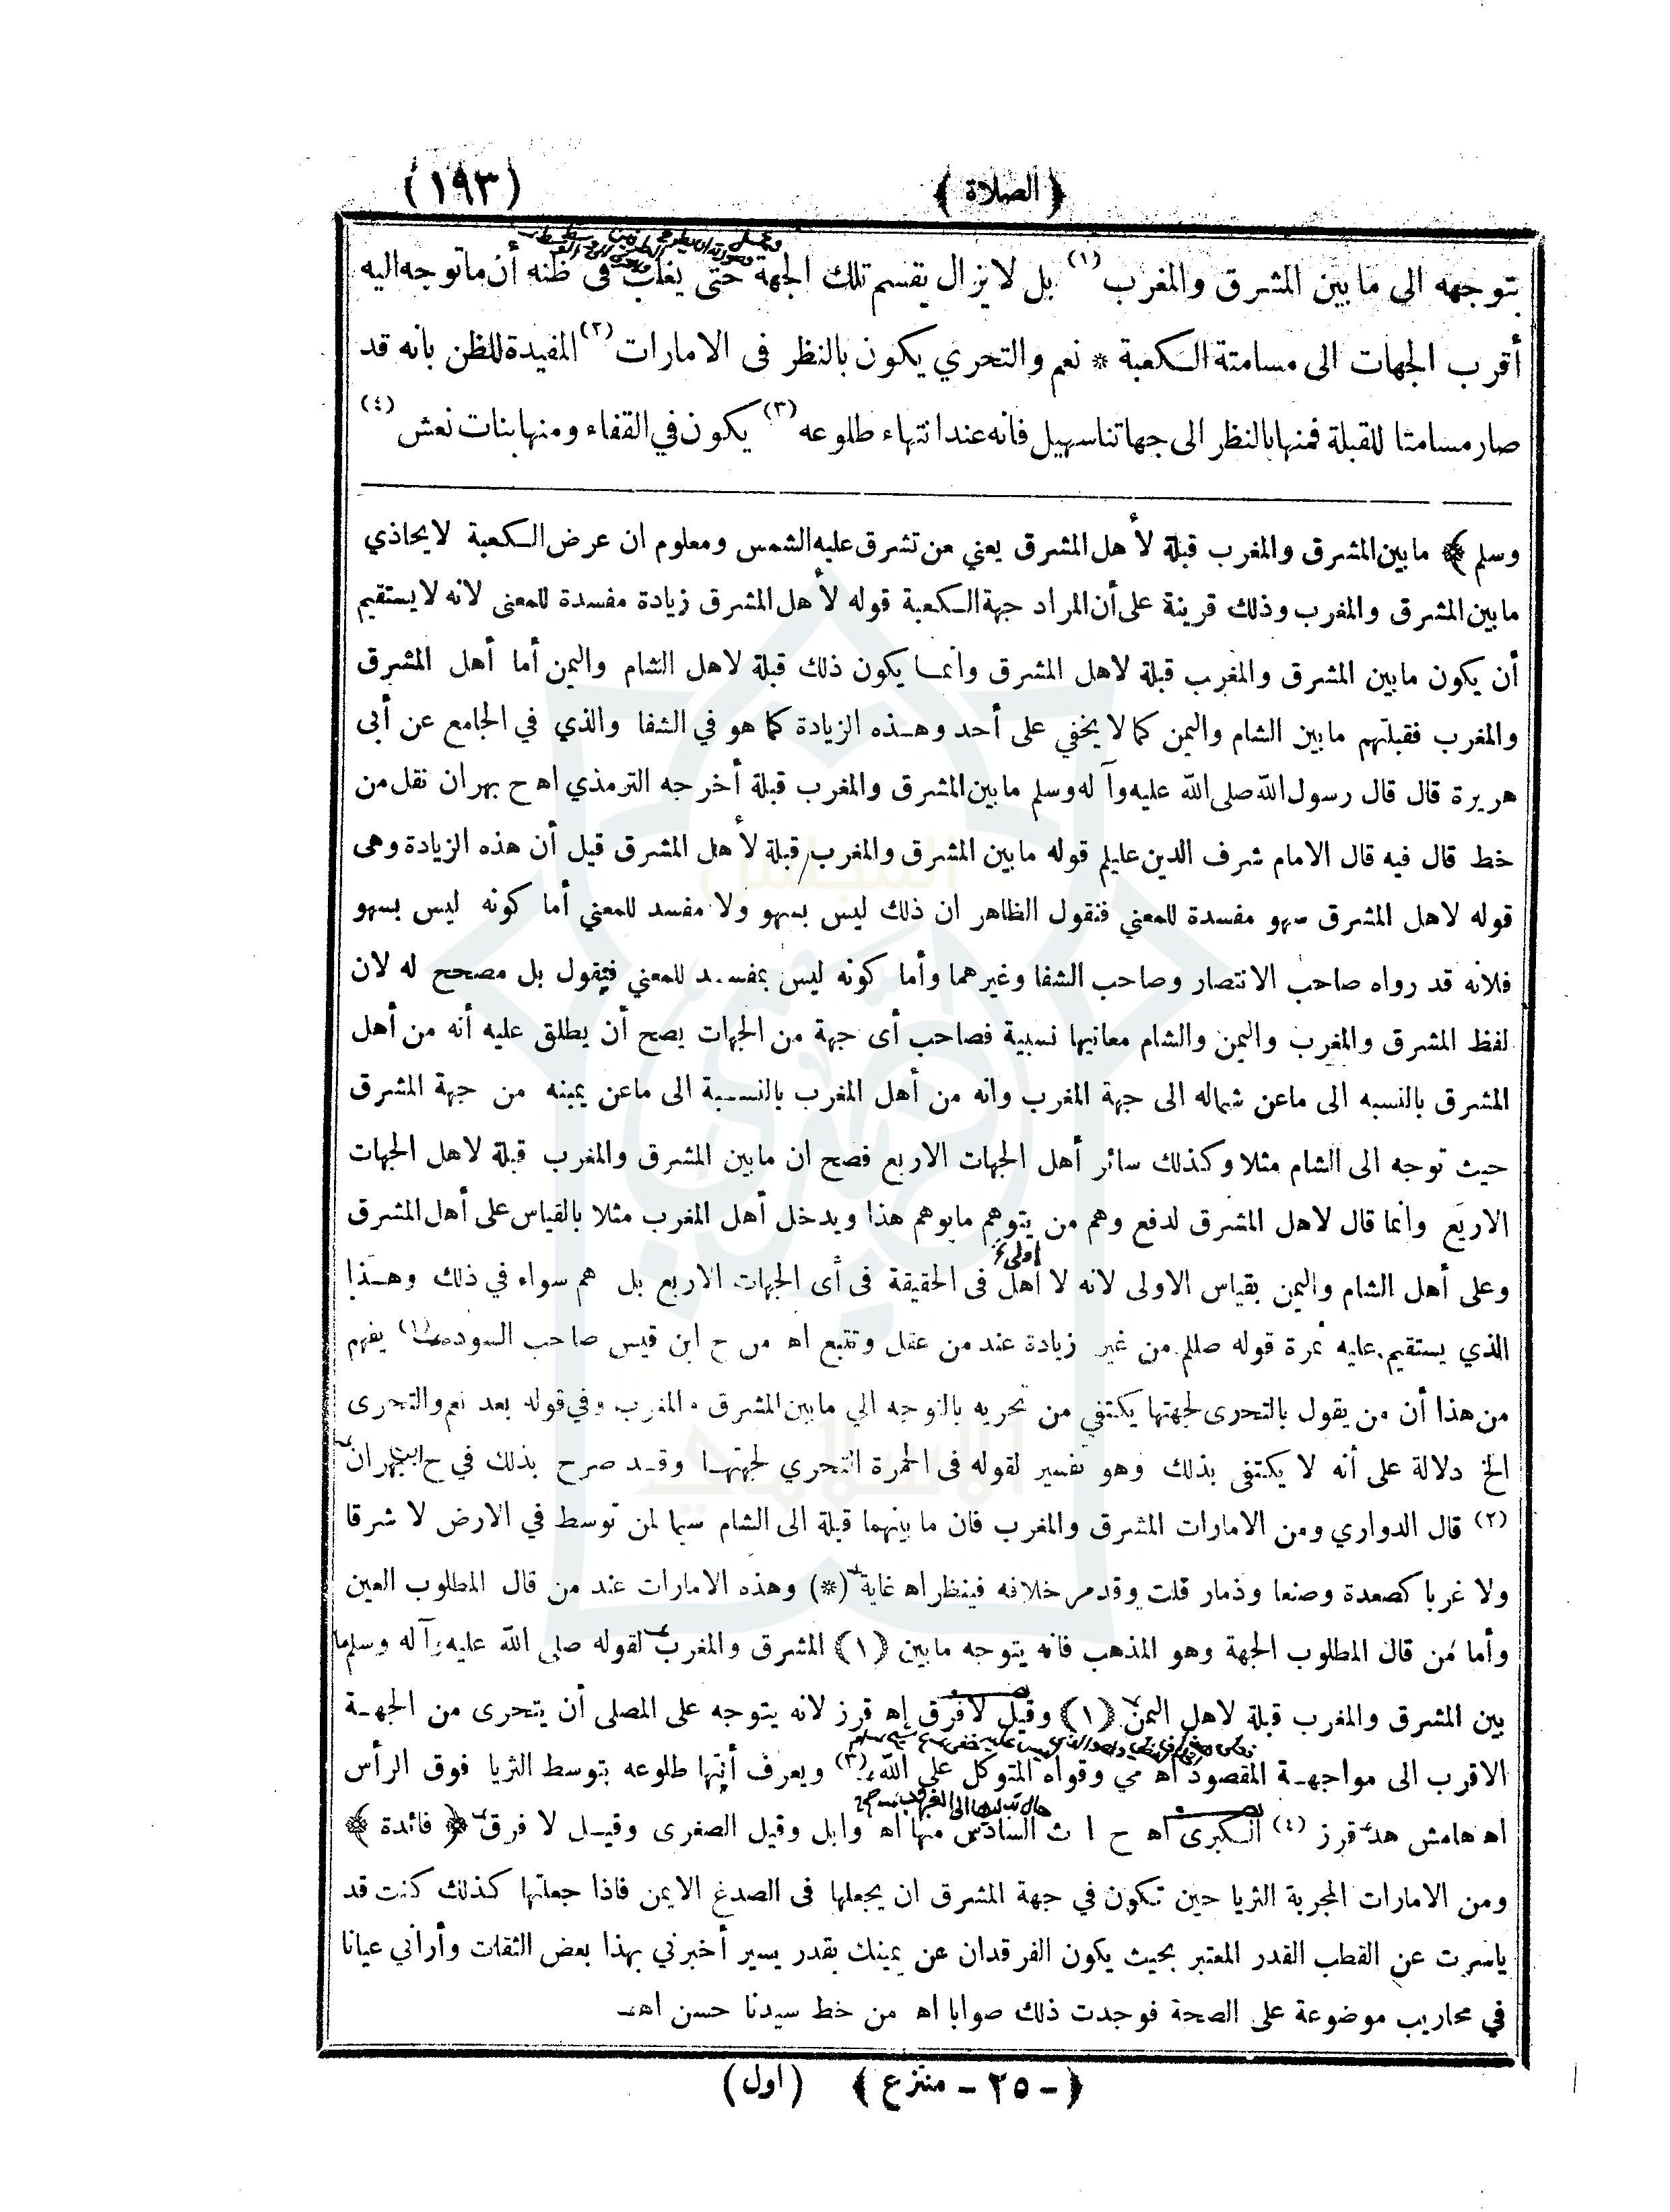 ﴿ الصلاة ﴾ (١٩٣)
بتوجهه الى ما بين المشرق والمغرب (١) بل لا يزال يقسم تلك الجهة حتى يغلب فى ظنه أن ما توجه اليه
أقرب الجهات الى مسامتة الكعبة * نعم والتحري يكون بالنظر فى الامارات (٢) المفيدة للظن بانه قد
صار مسامتا للقبلة فمنها بالنظر الى جهاتنا سهيل فانه عند انتهاء طلوعه (٣) يكون في القفاء ومنها بنات نعش (٤)
وسلم ﴾ ما بين المشرق والمغرب قبلة لأهل المشرق يعني عن تشرق عليه الشمس ومعلوم ان عرض الكعبة لا يحاذي
ما بين المشرق والمغرب وذلك قرينة على أن المراد جهة الكعبة قوله لأهل المشرق زيادة مفسدة للمعنى لانه لا يستقيم
أن يكون ما بين المشرق والمغرب قبلة لاهل المشرق وانما يكون ذلك قبلة لاهل الشام واليمن أما أهل المشرق
والمغرب فقبلتهم ما بين الشام واليمن كما لا يخفي على أحد وهذه الزيادة كما هو في الشفا والذي في الجامع عن أبى
هريرة قال قال رسول الله صلى الله عليه وآله وسلم ما بين المشرق والمغرب قبلة أخرجه الترمذي اه ح بهران نقل من
خط قال فيه قال الامام شرف الدين عليلم قوله ما بين المشرق والمغرب قبلة لأهل المشرق قيل أن هذه الزيادة وهى
قوله لاهل المشرق سهو مفسدة للمعني فنقول الظاهر ان ذلك ليس بسهو ولا مفسد للمعني أما كونه ليس بسهو
فلانه قد رواه صاحب الانتصار وصاحب الشفا وغيرهما وأما كونه ليس بمفسد للمعني فيقول بل مصحح له لان
لفظ المشرق والمغرب واليمن والشام معانيها نسبية فصاحب أى جهة من الجهات يصح أن يطلق عليه أنه من أهل
المشرق بالنسبه الى ماعن شماله الى جهة المغرب وانه من أهل المغرب بالنسبة الى ماعن يمينه من جهة المشرق
حيث توجه الى الشام مثلا وكذلك سائر أهل الجهات الاربع فصح ان ما بين المشرق والمغرب قبلة لاهل الجهات
الاربع وانما قال لاهل المشرق لدفع وهم من يتوهم ما يوهم هذا ويدخل أهل المغرب مثلا بالقياس على أهل المشرق
اولى
وعلى أهل الشام واليمن بقياس الاولى لانه لا اهل فى الحقيقة فى أى الجهات الاربع بل هم سواء في ذلك وهذا
الذي يستقيم عليه ثمرة قوله صللم من غير زيادة عند من عقل وتتبع اه من ح ابن قيس صاحب السودة (١) يفهم
من هذا أن من يقول بالتحرى لجهتها يكتفي من تحريه بالتوجه الي ما بين المشرق والمغرب وفي قوله بعد نعم والتحرى
الخ دلالة على أنه لا يكتفى بذلك وهو تفسير لقوله فى التحري لجهتها وقد صرح بذلك في ح ابن بهران
(٢) قال الدواري ومن الامارات المشرق والمغرب فان ما بينهما قبلة الى الشام سيما لمن توسط في الارض لا شرقا
ولا غربا كصعدة وصنعا وذمار قلت وقد مر خلافه فينظر اه غاية (*) وهذه الامارات عند من قال المطلوب العين
وأما من قال المطلوب الجهة وهو المذهب فانه يتوجه ما بين (١) المشرق والمغرب لقوله صلى الله عليه وآله وسلم ما
بين المشرق والمغرب قبلة لاهل اليمن (١) وقيل لا فرق اه قرز لانه يتوجه على المصلى أن يتحرى من الجهة
الاقرب الى مواجهة المقصود اه مي وقواه المتوكل على الله (٣) ويعرف انتها طلوعه بتوسط الثريا فوق الرأس
اه هامش هد قرز (٤) الكبرى اه ح ا ث السادس منها اه وابل وقيل الصغرى وقيل لا فرق ﴿ فائدة ﴾
ومن الامارات المجربة الثريا حين تكون في جهة المشرق ان يجعلها فى الصدغ الايمن فاذا جعلتها كذلك كنت قد
ياسرت عن القطب القدر المعتبر بحيث يكون الفرقدان عن يمينك بقدر يسير أخبرني بهذا بعض الثقات وأراني عيانا
في محاريب موضوعة على الصحة فوجدت ذلك صوابا اه من خط سيدنا حسن اه
﴿ - ٢٥ - منتزع ﴾ (اول)